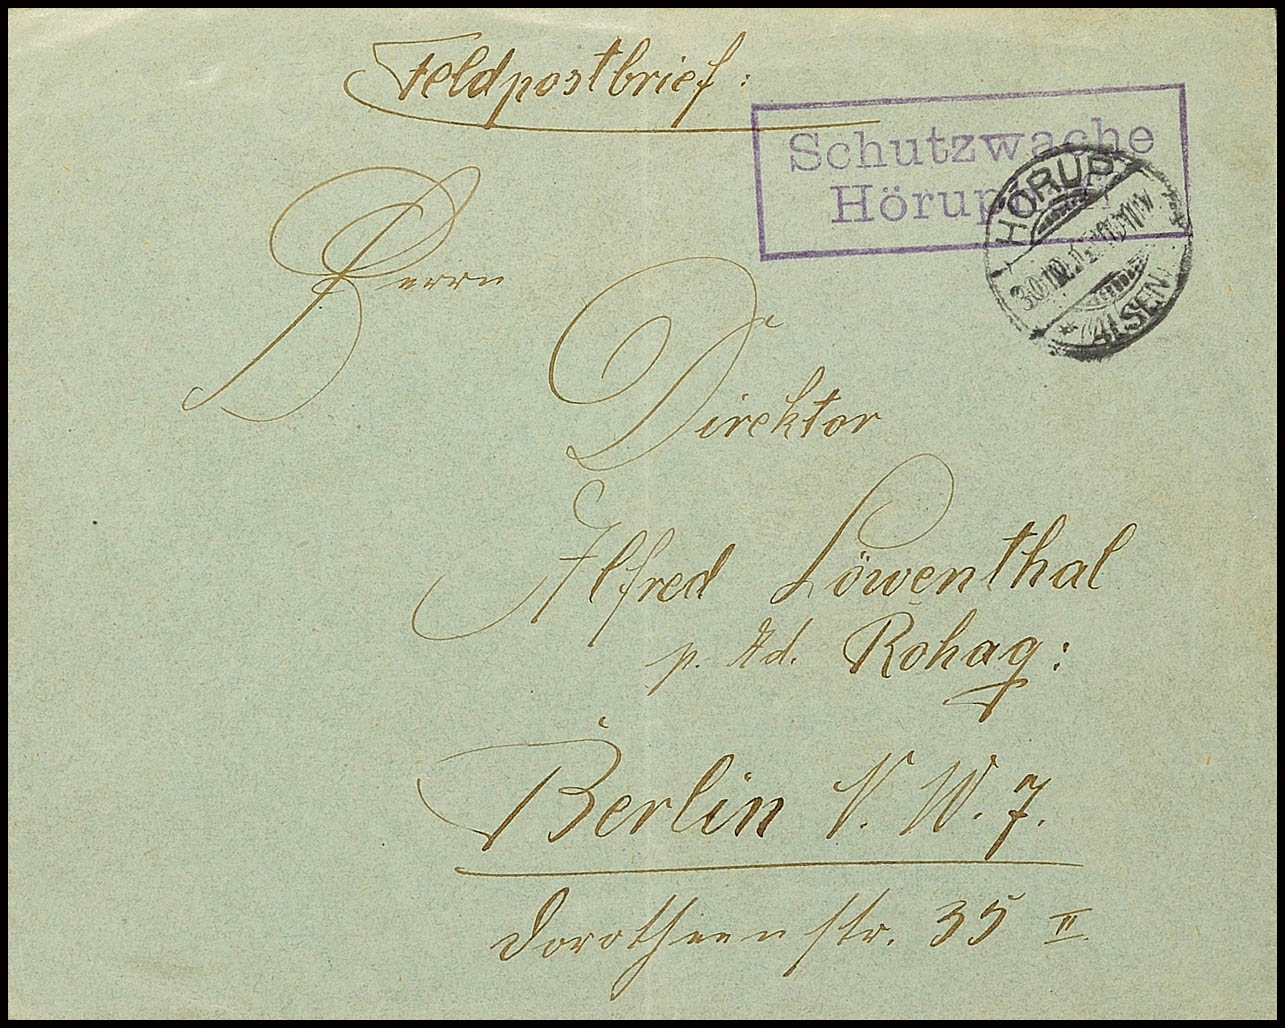 Feldpostbrief:
Schutzwache
HÖRUP
(ALSEN)
Herrn
Direktor
Alfred Löwenthal
p. Ad. Rohag:
Berlin N. W. 7.
Dorotheenstr. 35 II.